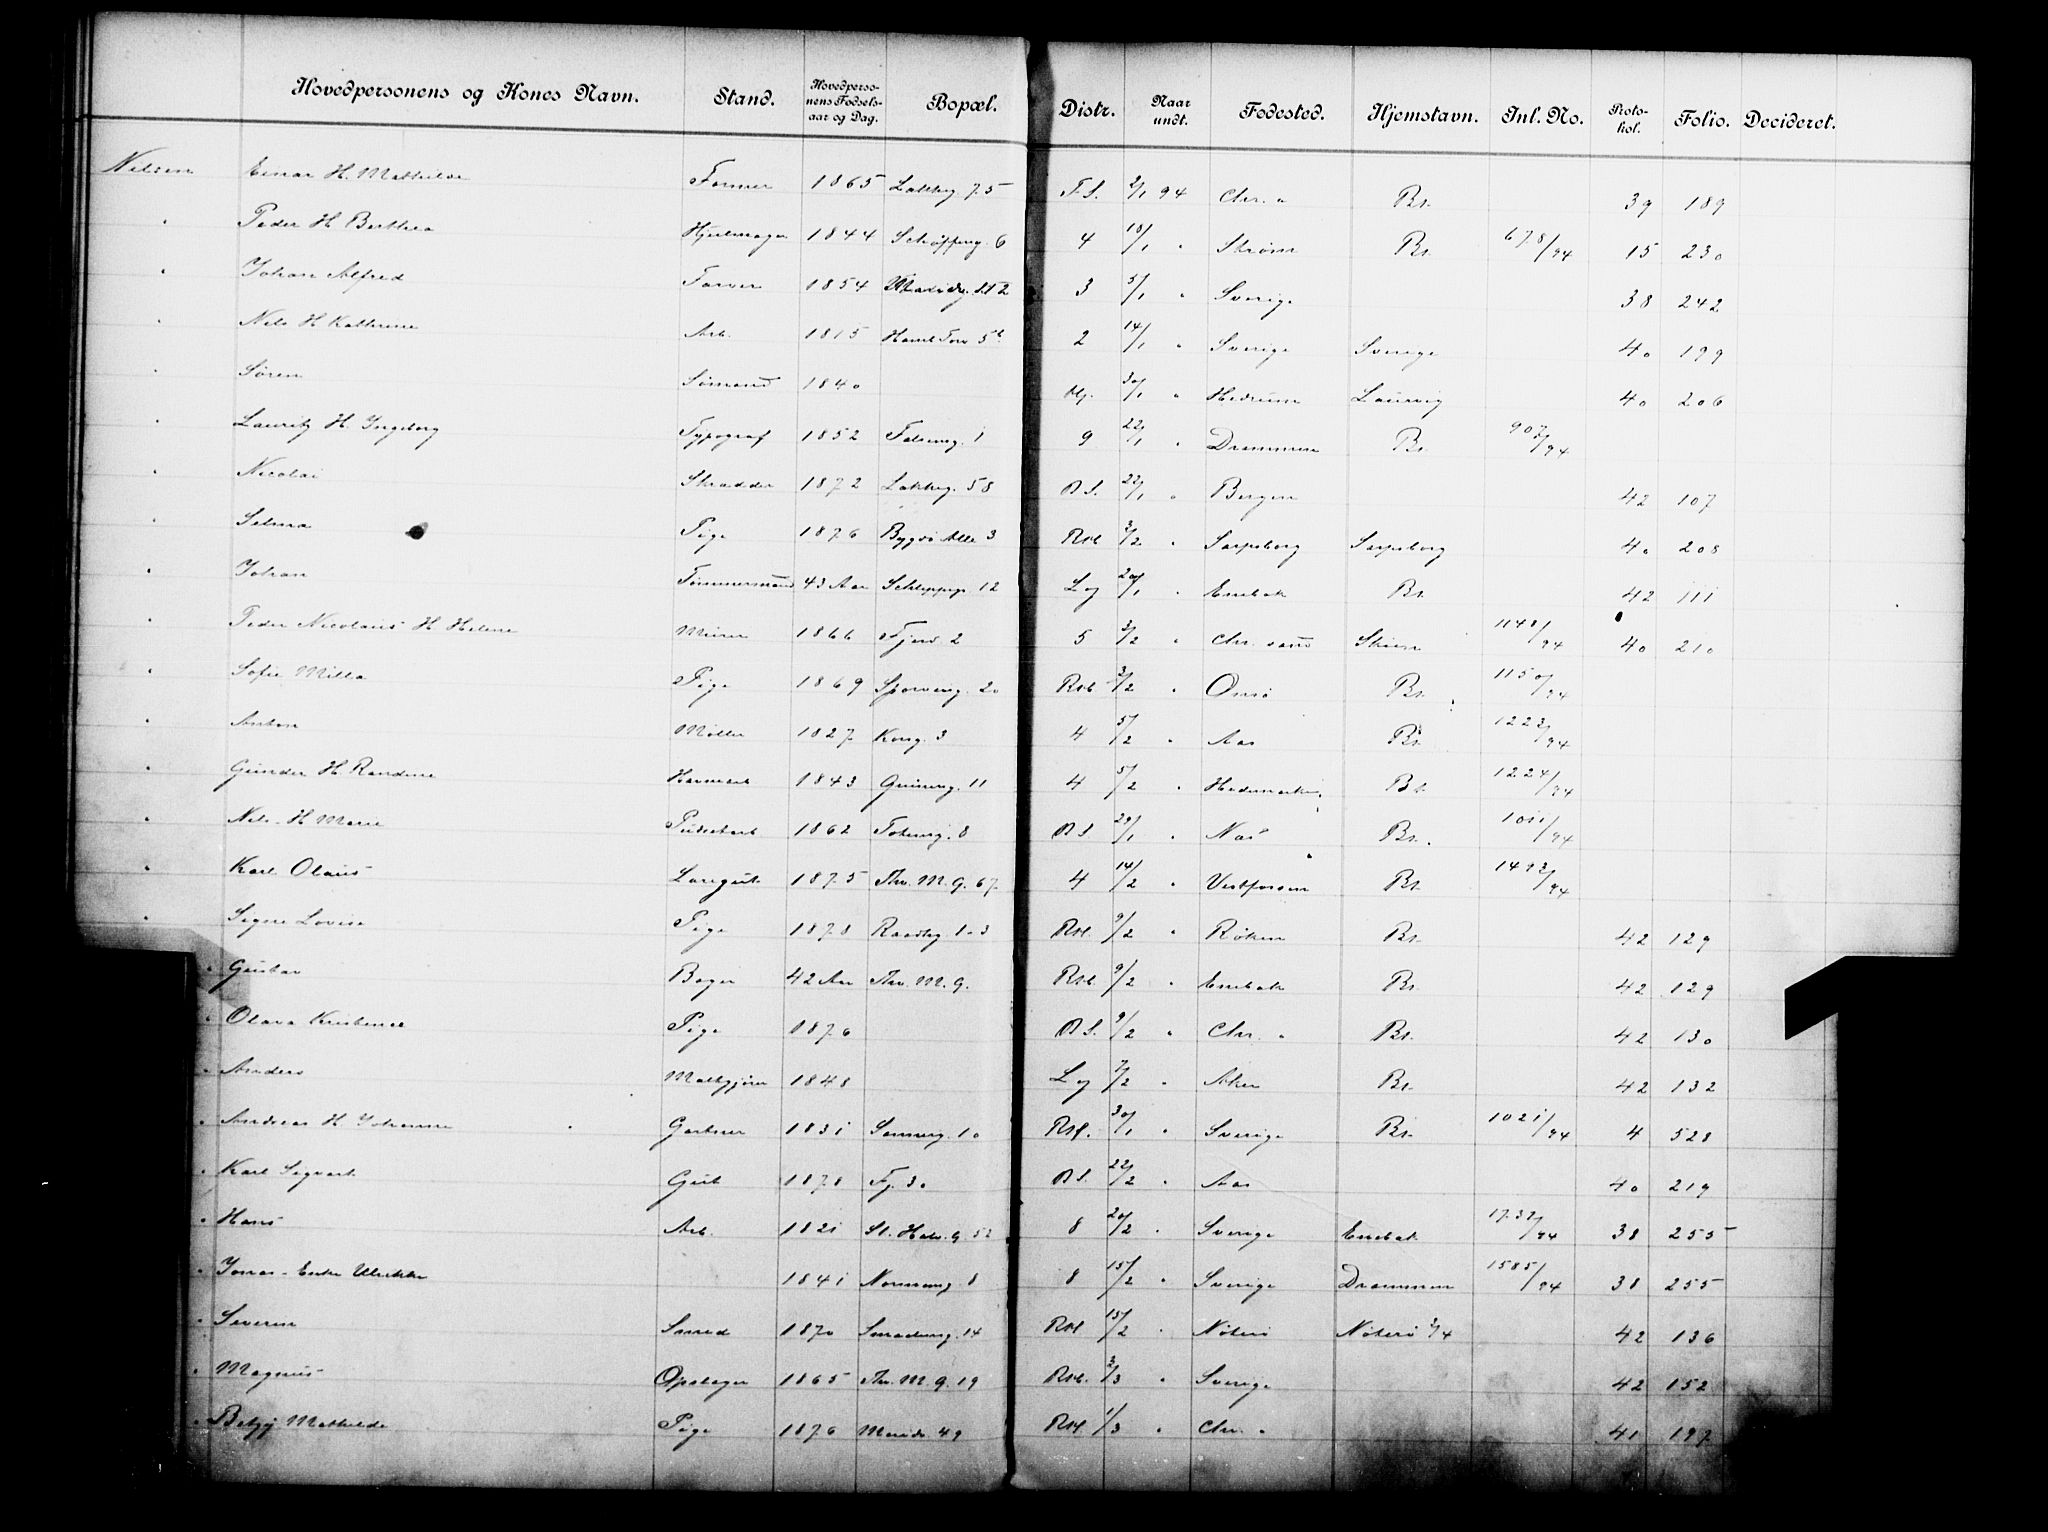 Hovedpersonens og Kones Navn. Stand. Hovedpersonens Fødselsaar og Dag. Bopæl. Distr. Naar undt. Fødested. Hjemstavn. Inl. No. Protokol. Folio. Decideret.
Nilsen Einar H. Mathilde Former 1865 Lakkeg. 75 F.S. 2/1 94 Chr. a Br. 39 189
" Peder H. Berthea Hjulmager 1844 Schøffing. 6 4 18/1 " Strøm Br. 678/94 15 230
" Johan Alfred Farver 1854 3 5/1 " Sverige 38 242
" Nils H. Kathrine Arb. 1815 Haml. Torv 5b 2 14/1 " Sverige Sverige 40 199
" Søren Sømand 1840 30/1 " Hedrum Laurvig 40 206
" Lauritz H. Ingeborg Typograf 1852 Falseng. 1 9 22/1 " Drammen Br. 907/94
" Nicolai Skrædder 1872 Lakkeg. 58 B.S. 22/1 " Bergen 42 107
" Selma Pige 1876 Bygdø Alle 3 Rst. 3/2 " Sarpsborg Sarpsborg 40 208
" Johan Tømmermand 43 Aar Schleppegr. 12 Log 20/1 " Enebak Br. 42 111
" Peder Nicolaus H. Helene Murer 1866 Fjerd. 2 5 3/2 " Chr.sand Skien 1148/94 40 210
" Sofie Milla Pige 1869 Sporveisg. 20 Rst. 3/2 " Onsø Br. 1150/94
" Anton Møller 1827 Kong. 3 4 5/2 " Aas Br. 1223/94
" Gunder H. Randine Havnearb. 1843 Grüning. 11 4 5/2 " Hedemarken Br. 1224/94
" Nils H. Marie Pudsearb. 1862 Toteng. 8 B.S. 29/1 " Næs Br. 1011/94
" Karl Olaus Løregut 1875 Thv. M. G. 67 4 14/2 " Vestfossen Br. 1493/94
" Signe Lovise Pige 1878 Raadhg. 1-3 Rst. 9/2 " Røken Br. 42 129
" Gustav Bager 42 Aar Thv. M. G. Rst. 9/2 " Enebak Br. 42 129
" Olava Kristense Pige 1876 B.S. 9/2 " Chr. a Br. 42 130
" Anders 1848 Log 7/2 " Aker Br. 42 132
" Andreas H. Johanne Gartner 1831 Sannerg. 10 Rst. 30/1 " Sverige Br. 1021/94 4 528
" Karl Sigvart Gut 1878 Fj. 30 B.S. 22/2 " Aas 40 219
" Hans Arb. 1821 St. Halv. G 52 8 20/2 " Sverige Enebak 1732/94 38 255
" Jonas - Enke Ulrikke 1841 Normang. 8 8 15/2 " Sverige Drammen 1585/94 38 255
" Severin Smed 1870 Smedeng. 14 Rst. 15/2 " Nøterø Nøterø 3/4 42 136
" Magnus Opvarter 1865 Thv. M. G. 19 Rst. 3/3 " Sverige 42 152
" Betzy Mathilde Pige 1876 Marids. 49 Rst. 1/3 " Chr. a 41 197